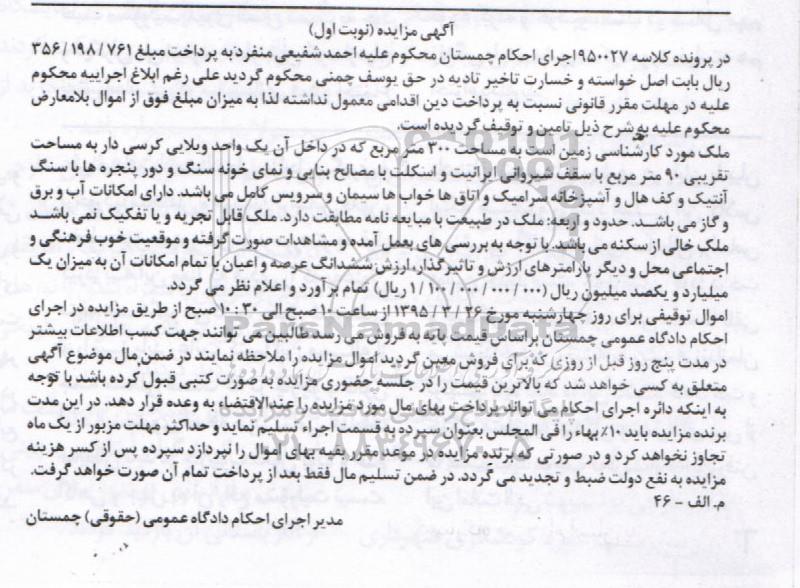 آگهی مزایده (نوبت اول)
در پرونده کلاسه ۹۵۰۰۲۷ اجرای احکام چمستان محکوم علیه احمد شفیعی منفرد به پرداخت مبلغ ۳۵۶/۱۹۸/۷۶۱
ریال بابت اصل خواسته و خسارت تاخیر تادیه در حق یوسف چمنی محکوم گردید علی رغم ابلاغ اجراییه محکوم
علیه در مهلت مقرر قانونی نسبت به پرداخت دین اقدامی معمول نداشته لذا به میزان مبلغ فوق از اموال بلامعارض
محکوم علیه به شرح ذیل تامین و توقیف گردیده است.
ملک مورد کارشناسی زمین است به مساحت ۳۰۰ متر مربع که در داخل آن یک واحد ویلایی کرسی دار به مساحت
تقریبی ۹۰ متر مربع با سقف شیروانی ایرانیت و اسکلت با مصالح بنایی و نمای خونه سنگ و دور پنجره ها با سنگ
آنتیک و کف هال و آشپزخانه سرامیک و اتاق ها خواب ها سیمان و سرویس کامل می باشد. دارای امکانات آب و برق
و گاز می باشد. حدود و اربعه ملک در طبیعت با مبایعه نامه مطابقت دارد. ملک قابل تجزیه و یا تفکیک نمی باشد
ملک خالی از سکنه می باشد. با توجه به بررسی های بعمل آمده و مشاهدات صورت گرفته و موقعیت خوب فرهنگی و
اجتماعی محل و دیگر پارامترهای ارزش و تاثیرگذار، ارزش ششدانگ عرصه و اعیان با تمام امکانات آن به میزان یک
میلیارد و یکصد میلیون ریال (۱/۱۰۰/۰۰۰/۰۰۰ ریال) تمام برآورد و اعلام نظر می گردد.
اموال توقیفی برای روز چهارشنبه مورخ ۱۳۹۵/۳/۲۶ از ساعت ۱۰ صبح الی ۱۰:۳۰ صبح از طریق مزایده در اجرای
احکام دادگاه عمومی چمستان براساس قیمت پایه به فروش می رسد طالبین می توانند جهت کسب اطلاعات بیشتر
در مدت پنج روز قبل از روزی که برای فروش معین گردید اموال مزایده را ملاحظه نمایند در ضمن مال موضوع آگهی
متعلق به کسی خواهد شد که بالاترین قیمت را در جلسه حضوری مزایده به صورت کتبی قبول کرده باشد با توجه
به اینکه دائره اجرای احکام می تواند پرداخت بهای مال مورد مزایده را عندالاقتضاء به وعده قرار دهد. در این مدت
برنده مزایده باید ۱۰٪ بهاء را فی المجلس بعنوان سپرده به قسمت اجراء تسلیم نماید و حداکثر مهلت مزبور از یک ماه
تجاوز نخواهد کرد و در صورتی که برنده مزایده در موعد مقرر بقیه بهای اموال را نپردازد سپرده پس از کسر هزینه
مزایده به نفع دولت ضبط و تجدید می گردد. در ضمن تسلیم مال فقط بعد از پرداخت تمام آن صورت خواهد گرفت.
م. الف - ۴۶
مدیر اجرای احکام دادگاه عمومی (حقوقی) چمستان
ParsNamadData